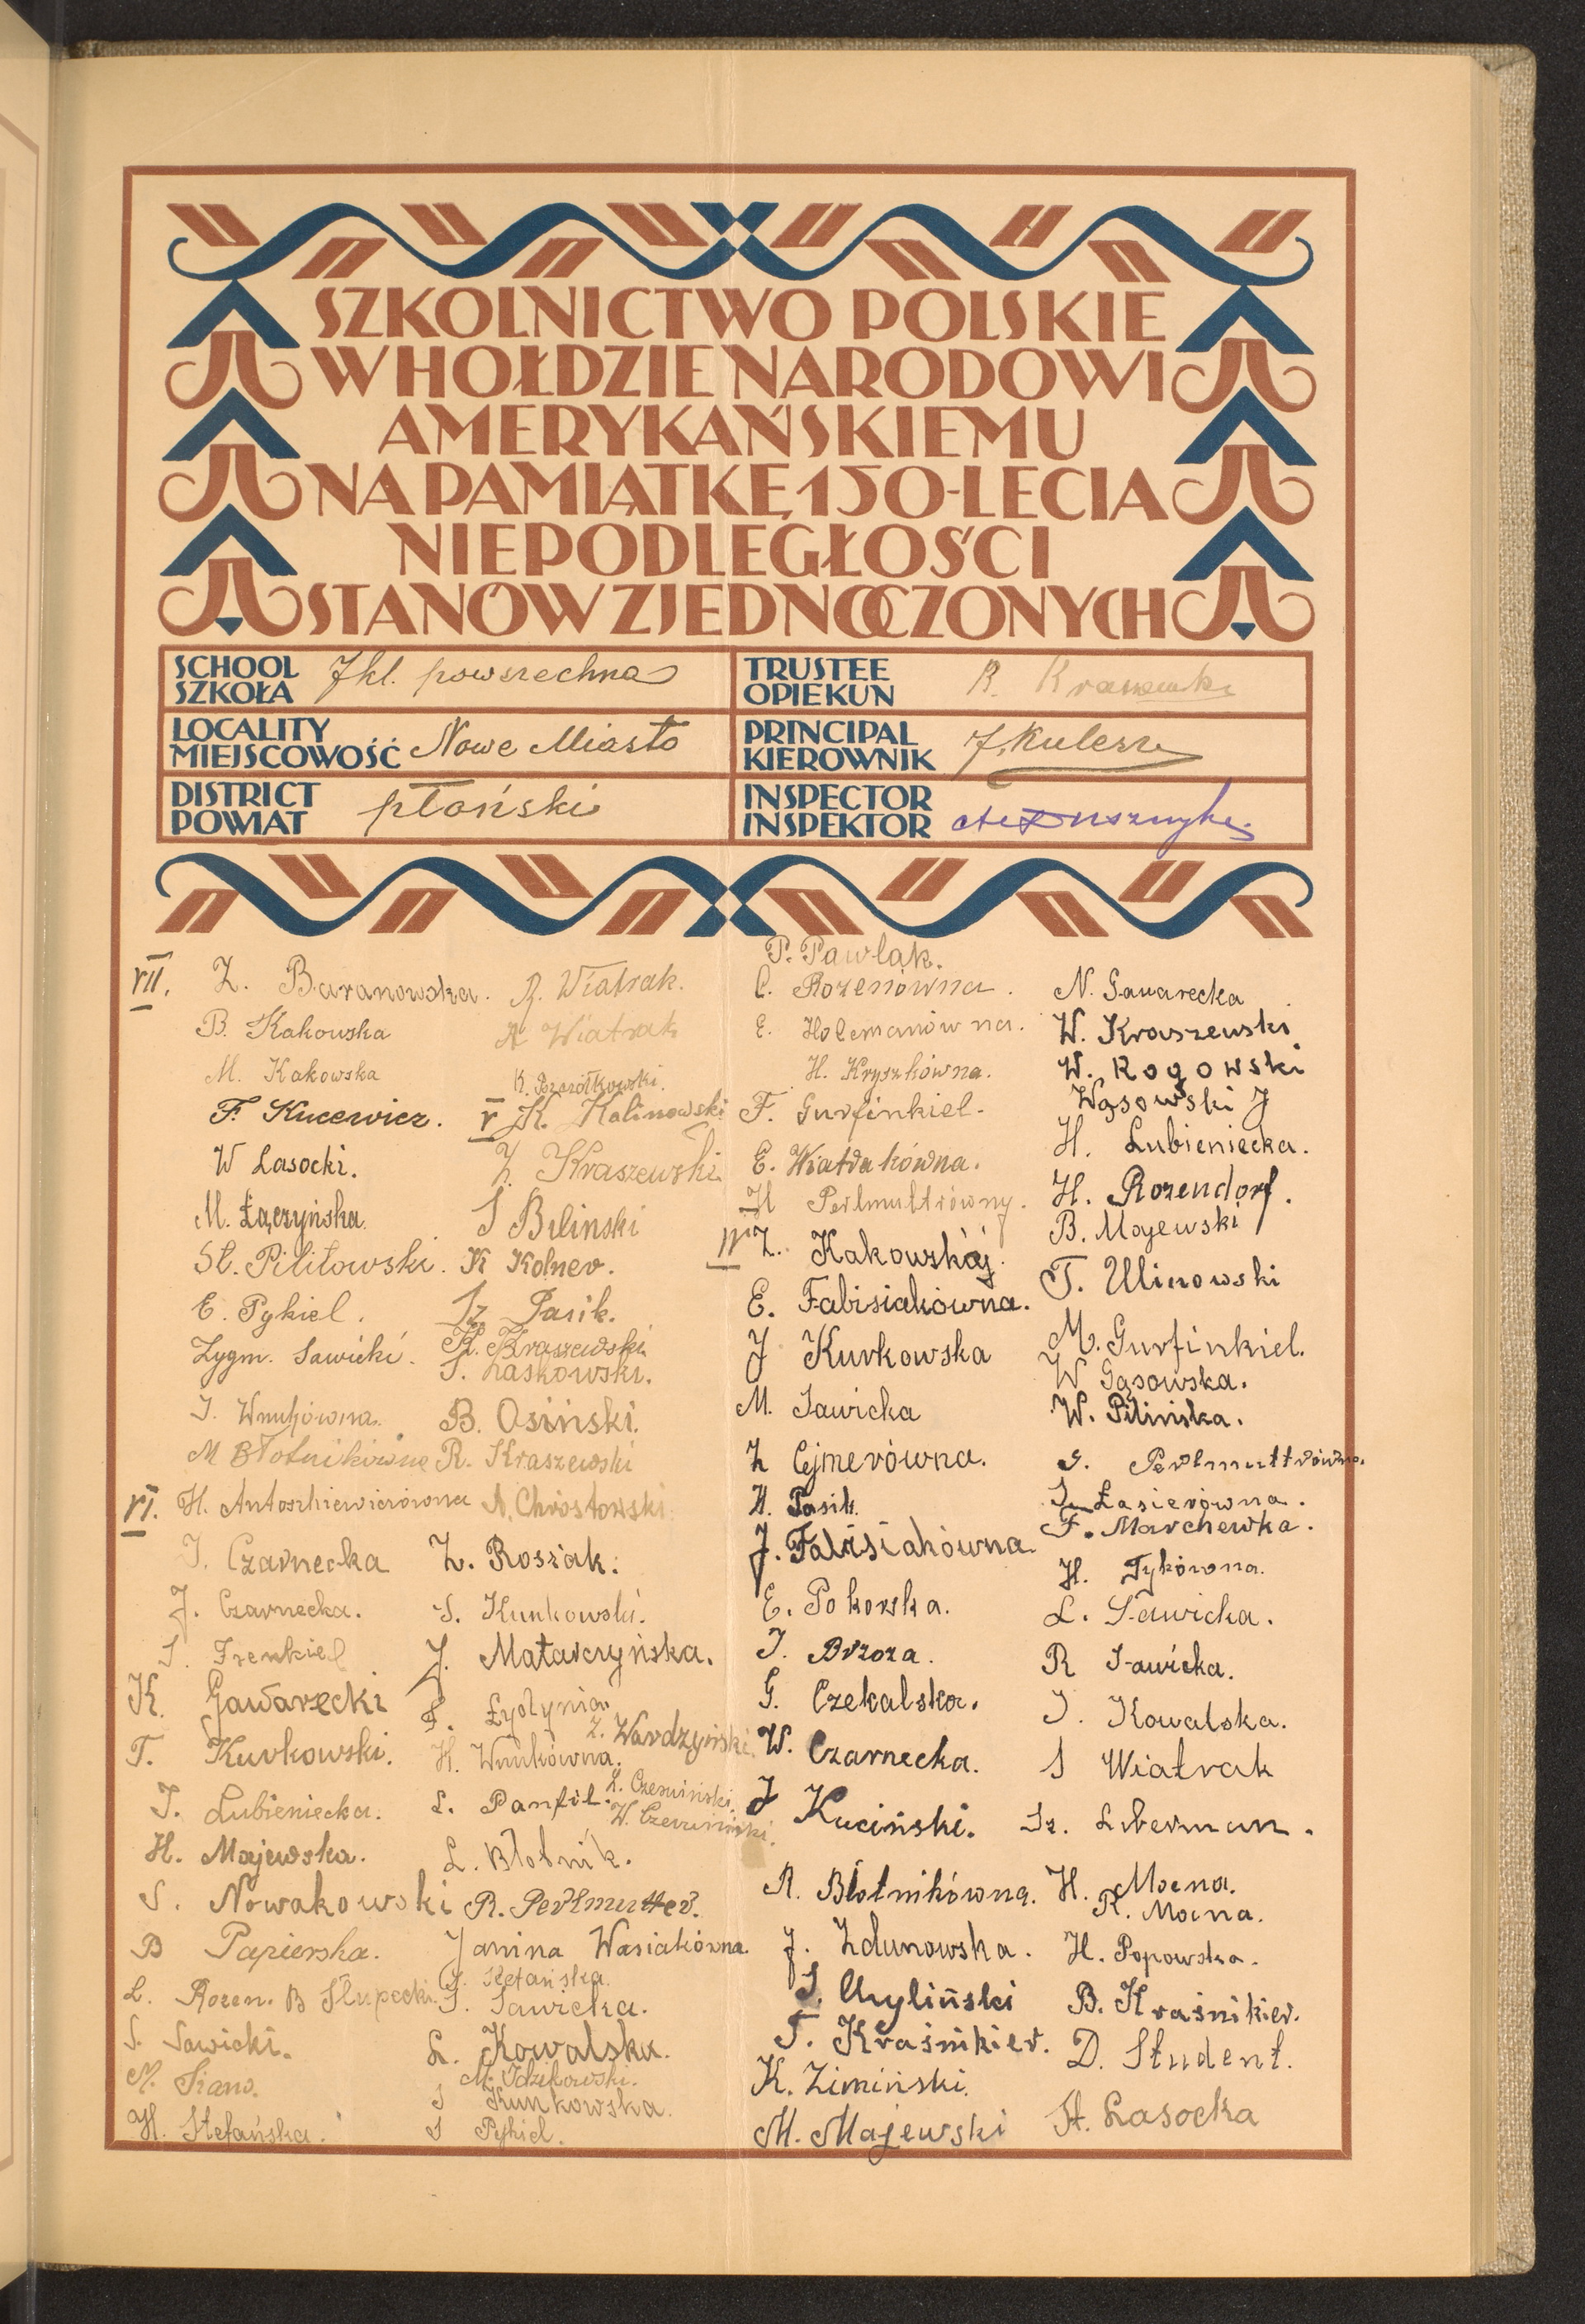 SZKOLNICTWO POLSKIE
W HOŁDZIE NARODOWI
AMERYKAŃSKIEMU
NA PAMIĄTKĘ 150-LECIA
NIEPODLEGŁOŚCI
STANÓW ZJEDNOCZONYCH
SCHOOL
SZKOŁA
7kl. powszechna
TRUSTEE
OPIEKUN
R. Kraszewski
LOCALITY
MIEJSCOWOŚĆ
Nowe Miasto
PRINCIPAL
KIEROWNIK
J. Kulesza
DISTRICT
POWIAT
płoński
INSPECTOR
INSPEKTOR
VII.
Z. Baranowska.
B. Kakowska
M. Kakowska
F. Kucewicz.
W Lasocki.
M. Łączyńska.
St. Pilitowski.
E. Pykiel.
Zygm. Sawicki.
I. Wnukówna.
M Błotnikówna
VI.
H. Antoszkiewiczówna
I. Czarnecka
J. Czarnecka.
S. Frenkiel
K. Gawarecki
T. Kurkowski.
I. Lubieniecka.
H. Majewska.
S. Nowakowski
B Papierska.
L. Rozen. B Słupecki.
S. Sawicki.
H. Stefańska.
R. Wiatrak.
A Wiatrak
K. Pszczółkowski.
V K. Kalinowski
Z. Kraszewski
S Bilinski
K Kolner.
Sz. Pasik.
K. Kraszewski
S. Laskowski.
B. Osiński.
R. Kraszewski
A. Chróstowski.
Z. Rosiak.
S. Kunkowski.
J. Matarczyńska.
F. Łydynia.
Z. Wardzyński.
H. Wnukówna.
L. Czerwiński.
L. Panfil.
W. Czerwiński.
L. Błotnik.
R. Perlmutter.
Janina Wasiakówna.
S. Sawicka.
L. Kowalska.
S Kunkowska.
S Pykiel.
P. Pawlak.
C. Rozenówna.
E. Holcmanówna.
H. Kryszkówna.
F. Gurfinkiel.
E. Wiatrakówna.
H Perlmutrówny.
IV Z. Kakowskaj.
E. Fabisiakówna.
J Kurkowska
M. Sawicka
Z Cejmerówna.
H. Pasik.
J. Fabisiakówna.
E. Pokorska.
I. Brzoza.
G. Czekalska.
W. Czarnecka.
J Kuciński.
R. Błotnikówna.
J. Zdunowska.
S. Chyliński
T. Kraśnikier.
K. Zimiński.
M. Majewski
N. Gawarecka
W. Kraszewski
W. Rogowski
Wąsowski J
H. Lubieniecka.
H. Rozendorf.
B. Majewski
T. Ulinowski
M. Gurfinkiel.
W Gąsowska.
W. Pilińska.
S. Perlmuttrówna.
Łasierówna.
F. Marchewka.
H. Tykówna.
L. Sawicka.
R Sawicka.
I. Kowalska.
S Wiatrak
Sz. Liberman.
H. Mocna.
R. Mocna.
H. Popowska.
B. Kraśnikier.
D. Student.
St. Lasocka